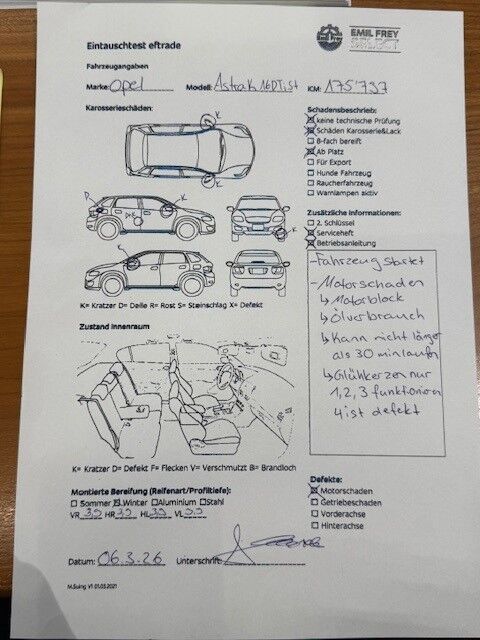 EMIL FREY
SELECT
Eintauschtest eftrade
Fahrzeugangaben
Marke: Opel Modell: Astra K 16DTist KM: 175'737
Karosserieschäden:
K
K
D
K
D+K
K
K
K= Kratzer D= Delle R= Rost S= Steinschlag X= Defekt
Schadensbeschrieb:
keine technische Prüfung
Schäden Karosserie&Lack
8-fach bereift
Ab Platz
Für Export
Hunde Fahrzeug
Raucherfahrzeug
Warnlampen aktiv
Zusätzliche Informationen:
2. Schlüssel
Serviceheft
Betriebsanleitung
- Fahrzeug startet
- Motorschaden
↳ Motorblock
↳ Ölverbrauch
↳ Kann nicht länger
als 30 min laufen
↳ Glühkerzen nur
1, 2, 3 funktionieren
4 ist defekt
Zustand Innenraum
K= Kratzer D= Defekt F= Flecken V= Verschmutzt B= Brandloch
Montierte Bereifung (Reifenart/Profiltiefe):
Sommer Winter Aluminium Stahl
VR HR HL VL
Defekte:
Motorschaden
Getriebeschaden
Vorderachse
Hinterachse
Datum: 06.3.26 Unterschrift:
M.Suing V1 01.03.2021